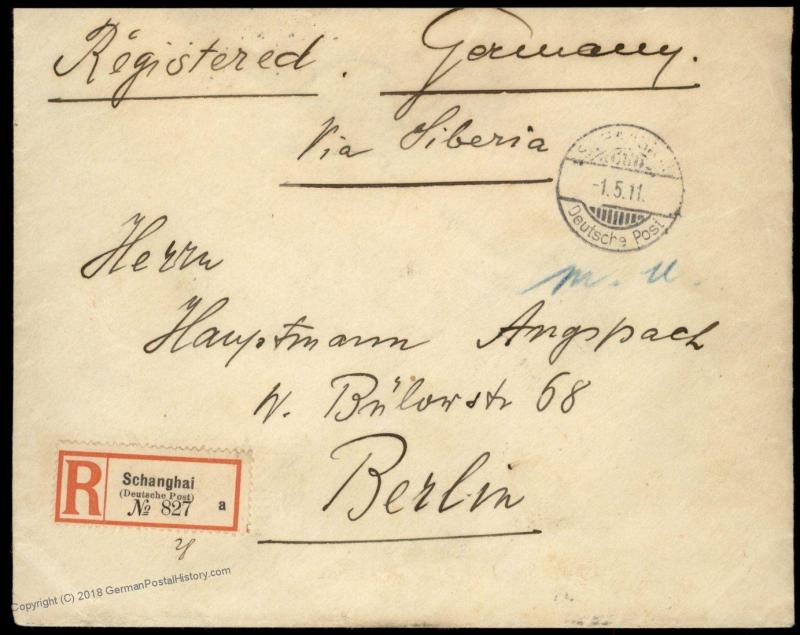 Registered. Germany.
Via Siberia
-1.5.11.
Deutsche Post
m. u.
Herrn
Hauptmann Angspach
W. Bülowstr 68
Berlin
R
Schanghai
(Deutsche Post)
№ 827 a
Copyright (C) 2018 GermanPostalHistory.com